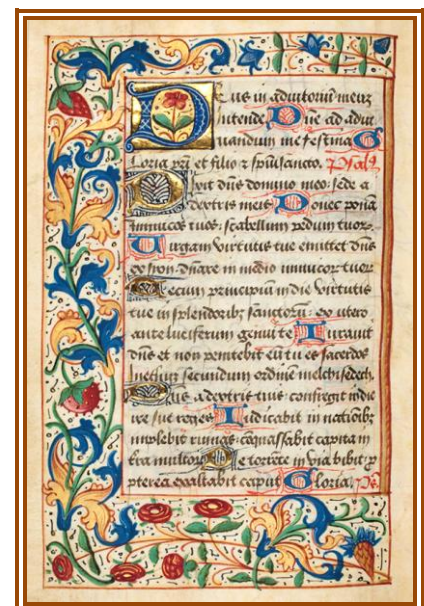 Deus in adiutoriū meuz
intende Dn̄e ad adiu
uandum me festina G
Loria pr̄i et filio z spūisancto. Psal9
Dixit dn̄s domino meo: sede a
dextris meis Donec ponā
inimicos tuos: scabellum pedum tuorꝝ
Uirgam virtutis tue emittet dn̄s
ex syon: dn̄are in medio inimicorꝝ tuorꝝ
Tecum principiū in die virtutis
tue in splendoribꝫ sanctorū: ex utero
ante luciferum genui te Iurauit
dn̄s et non penitebit eū tu es sacerdos
secundum ordinē melchisedech
Dn̄s a dextris tuis: confregit in die
ire sue reges Iudicabit in nationibꝫ
implebit ruinas: cōquassabit capita in
terra multorꝝ De torrente in via bibit: ꝓ
pterea exaltabit caput Gloria. Ps.